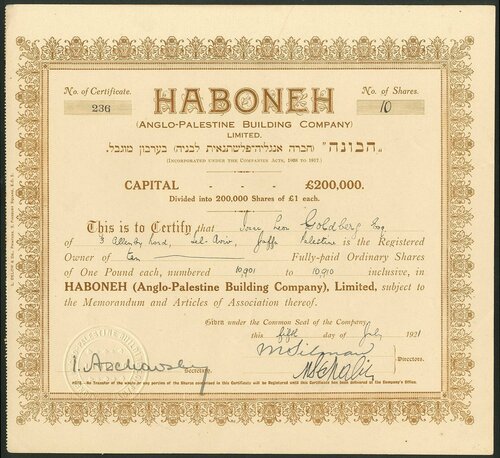 No. of Certificate.
236
HABONEH
No. of Shares.
10
(ANGLO-PALESTINE BUILDING COMPANY)
LIMITED.
„הבונה” (חברה אנגליה-פלשתנאית לבניה) בערבון מוגבל.
(INCORPORATED UNDER THE COMPANIES ACTS, 1908 TO 1917.)
CAPITAL - - - £200,000.
Divided into 200,000 Shares of £1 each.
This is to Certify that Leon Goldberg Esq
of 3 Allenby Road, Tel-Aviv, Jaffa Palestine is the Registered
Owner of ten Fully-paid Ordinary Shares
of One Pound each, numbered 10,901 to 10,910 inclusive, in
HABONEH (Anglo-Palestine Building Company), Limited, subject to
the Memorandum and Articles of Association thereof.
Given under the Common Seal of the Company,
this fifth day of July 1921
Directors.
Secretary.
NOTE.—No Transfer of the whole or any portion of the Shares comprised in this Certificate will be Registered until this Certificate has been delivered at the Company's Office.